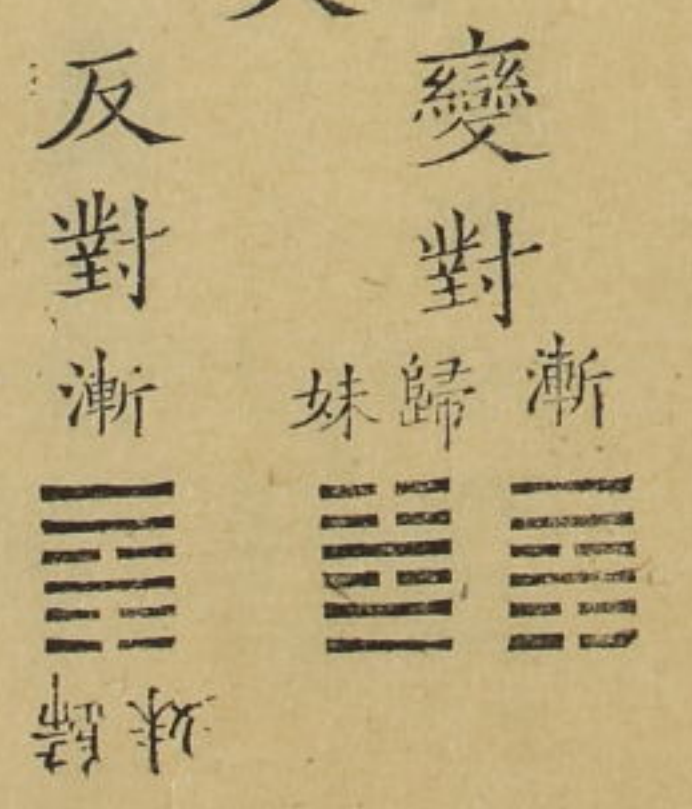 變對
漸
歸妹
反對
漸
歸妹